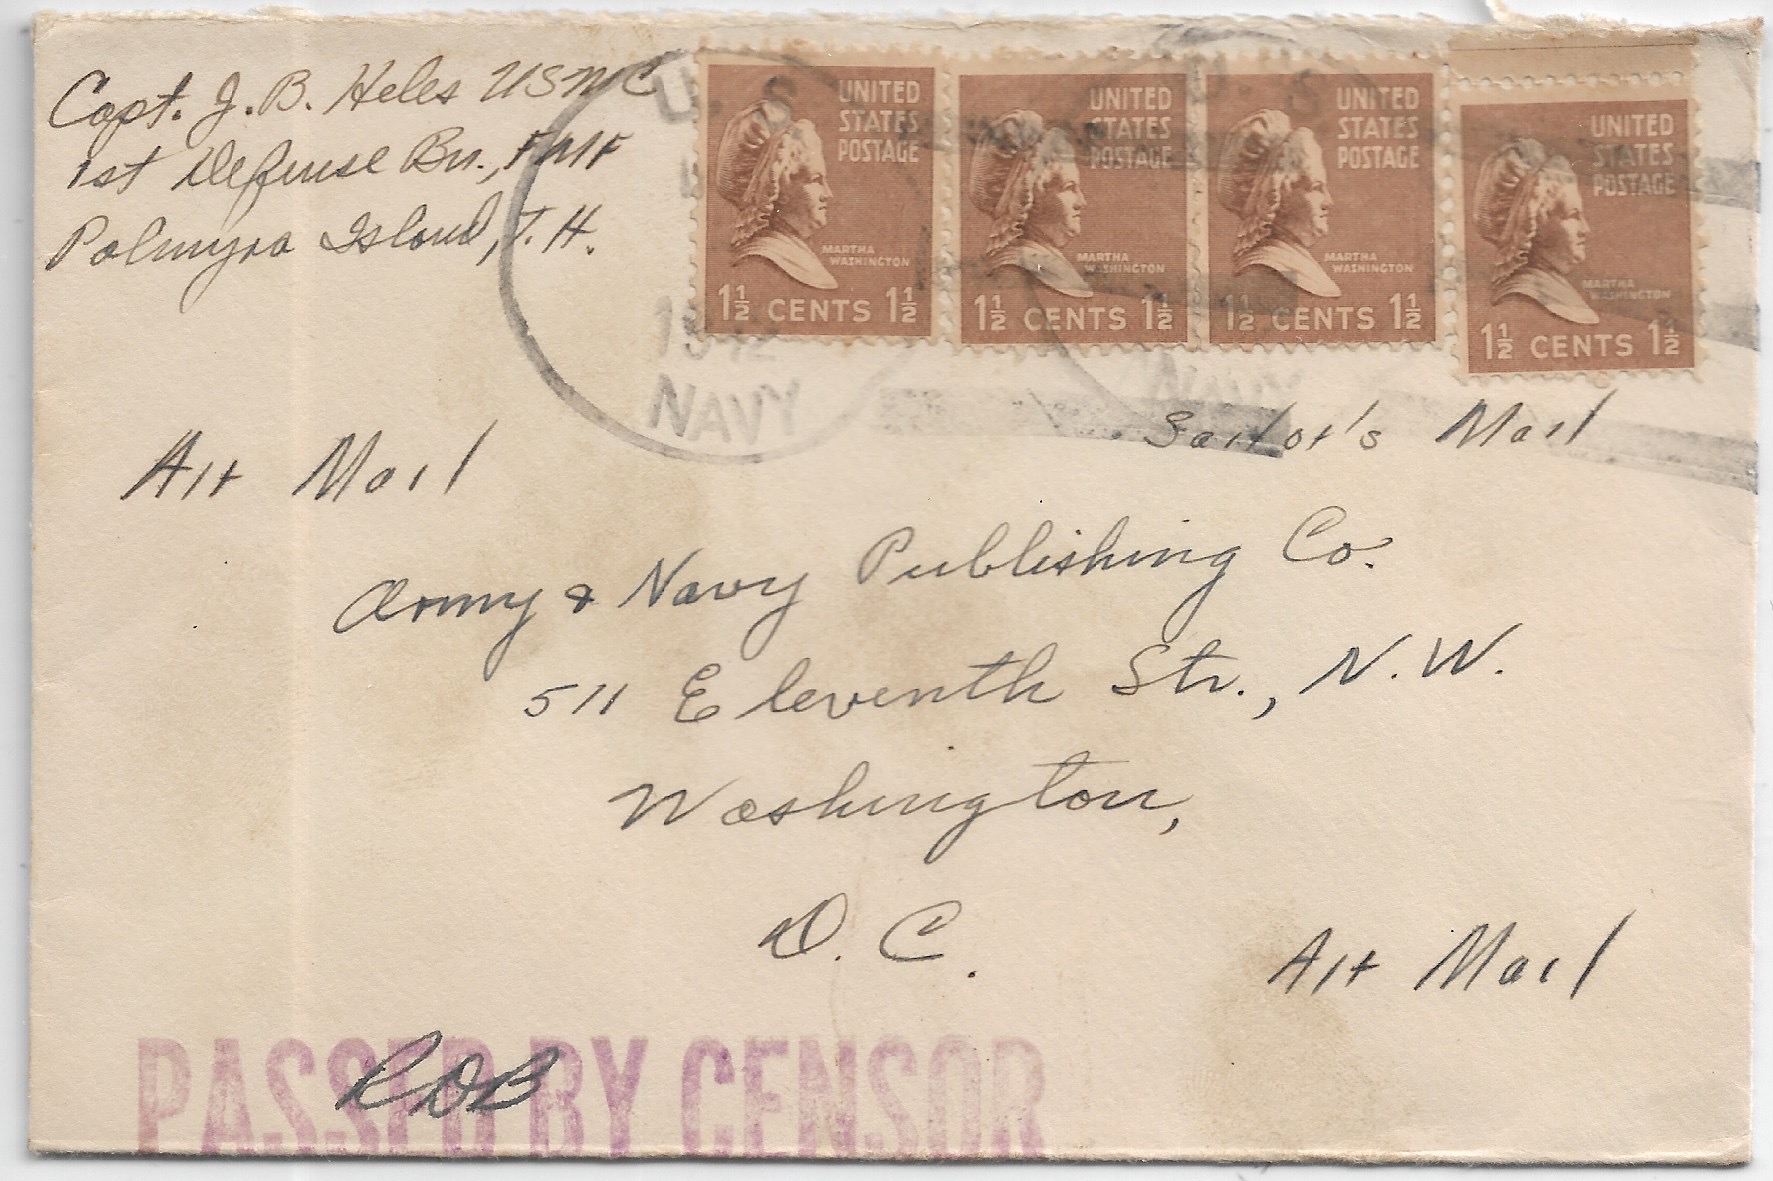 Capt. J. B. Heles USMC
1st Defense Bn., FMF
Palmyra Island, T. H.
U. S.
1942
NAVY
U. S.
NAVY
UNITED
STATES
POSTAGE
MARTHA
WASHINGTON
1½ CENTS 1½
UNITED
STATES
POSTAGE
MARTHA
WASHINGTON
1½ CENTS 1½
UNITED
STATES
POSTAGE
MARTHA
WASHINGTON
1½ CENTS 1½
UNITED
STATES
POSTAGE
MARTHA
WASHINGTON
1½ CENTS 1½
Sailor's Mail
Air Mail
Army & Navy Publishing Co.
511 Eleventh Str., N.W.
Washington,
D. C.
Air Mail
PASSED BY CENSOR
RDB